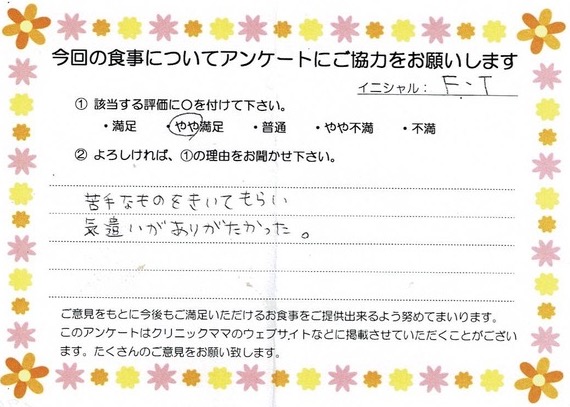 今回の食事についてアンケートにご協力をお願いします
イニシャル: F・T
① 該当する評価に○を付けて下さい。
・満足 ・やや満足 ・普通 ・やや不満 ・不満
② よろしければ、①の理由をお聞かせ下さい。
苦手なものをきいてもらい
気遣いがありがたかった。
ご意見をもとに今後もご満足いただけるお食事をご提供出来るよう努めてまいります。
このアンケートはクリニックママのウェブサイトなどに掲載させていただくことがござい
ます。たくさんのご意見をお願い致します。